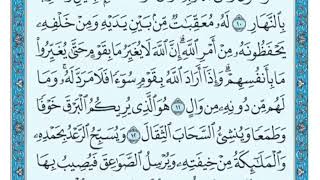 بِٱلنَّهَارِ ١٠ لَهُۥ مُعَقِّبَٰتٌ مِّنۢ بَيْنِ يَدَيْهِ وَمِنْ خَلْفِهِۦ
يَحْفَظُونَهُۥ مِنْ أَمْرِ ٱللَّهِ إِنَّ ٱللَّهَ لَا يُغَيِّرُ مَا بِقَوْمٍ حَتَّىٰ يُغَيِّرُوا۟
مَا بِأَنفُسِهِمْ وَإِذَآ أَرَادَ ٱللَّهُ بِقَوْمٍ سُوٓءًا فَلَا مَرَدَّ لَهُۥ وَمَا
لَهُم مِّن دُونِهِۦ مِن وَالٍ ١١ هُوَ ٱلَّذِى يُرِيكُمُ ٱلْبَرْقَ خَوْفًا
وَطَمَعًا وَيُنشِئُ ٱلسَّحَابَ ٱلثِّقَالَ ١٢ وَيُسَبِّحُ ٱلرَّعْدُ بِحَمْدِهِۦ
وَٱلْمَلَٰٓئِكَةُ مِنْ خِيفَتِهِۦ وَيُرْسِلُ ٱلصَّوَٰعِقَ فَيُصِيبُ بِهَا